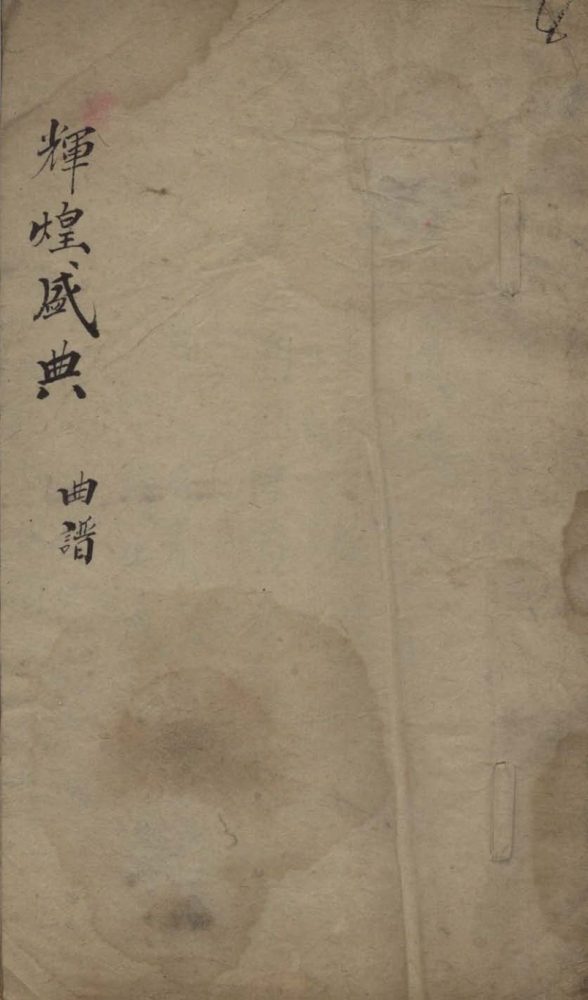 輝煌盛典 曲譜